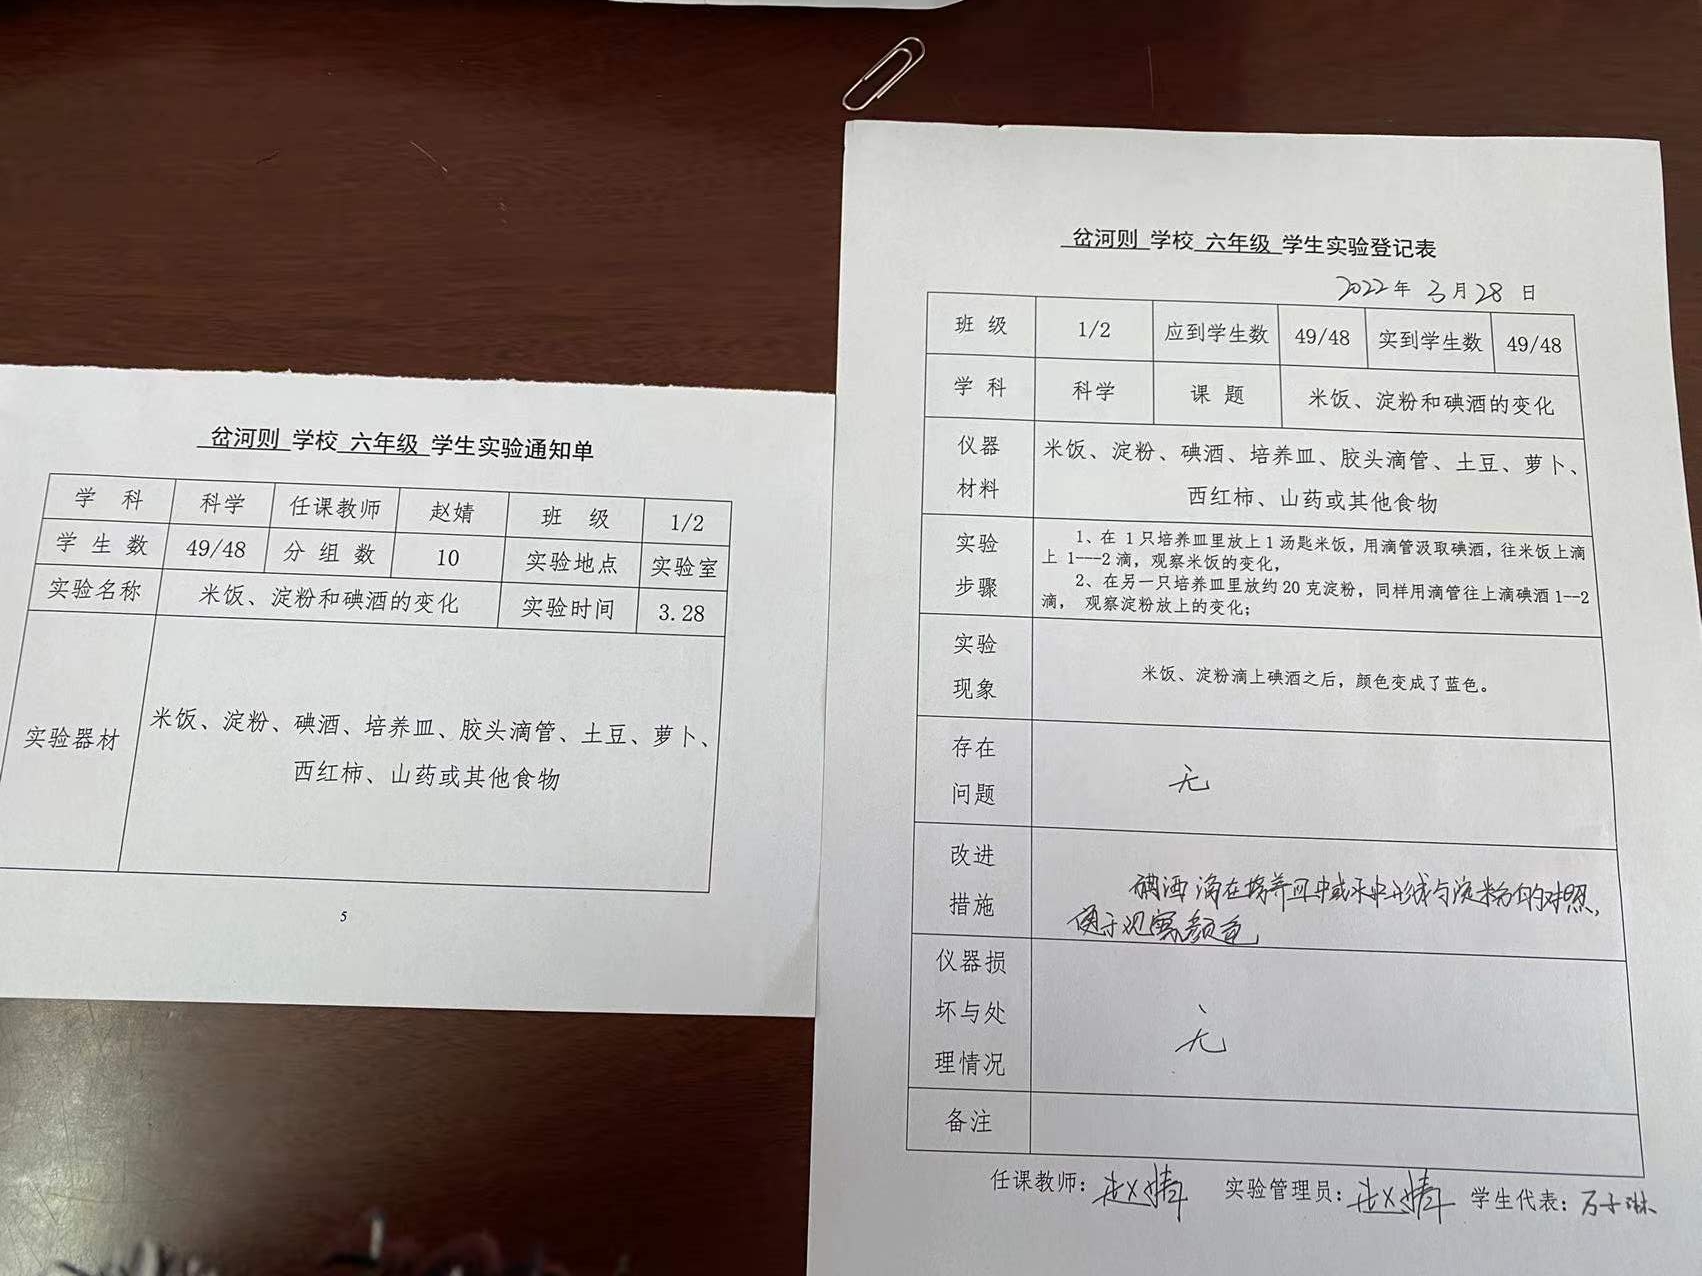 岔河则 学校 六年级 学生实验通知单
学 科 科学 任课教师 赵婧 班 级 1/2
学 生 数 49/48 分 组 数 10 实验地点 实验室
实验名称 米饭、淀粉和碘酒的变化 实验时间 3.28
实验器材
米饭、淀粉、碘酒、培养皿、胶头滴管、土豆、萝卜、
西红柿、山药或其他食物
5
岔河则 学校 六年级 学生实验登记表
2022年 3月28 日
班 级 1/2 应到学生数 49/48 实到学生数 49/48
学 科 科学 课 题 米饭、淀粉和碘酒的变化
仪器
材料
米饭、淀粉、碘酒、培养皿、胶头滴管、土豆、萝卜、
西红柿、山药或其他食物
实验
步骤
1、在 1 只培养皿里放上 1 汤匙米饭，用滴管汲取碘酒，往米饭上滴
上 1---2 滴，观察米饭的变化，
2、在另一只培养皿里放约 20 克淀粉，同样用滴管往上滴碘酒 1--2
滴， 观察淀粉放上的变化；
实验
现象
米饭、淀粉滴上碘酒之后，颜色变成了蓝色。
存在
问题
无
改进
措施
碘酒滴在培养皿中或水中形成与淀粉的对照，
便于观察颜色
仪器损
坏与处
理情况
无
备注
任课教师：赵婧 实验管理员：赵婧 学生代表：万子琳